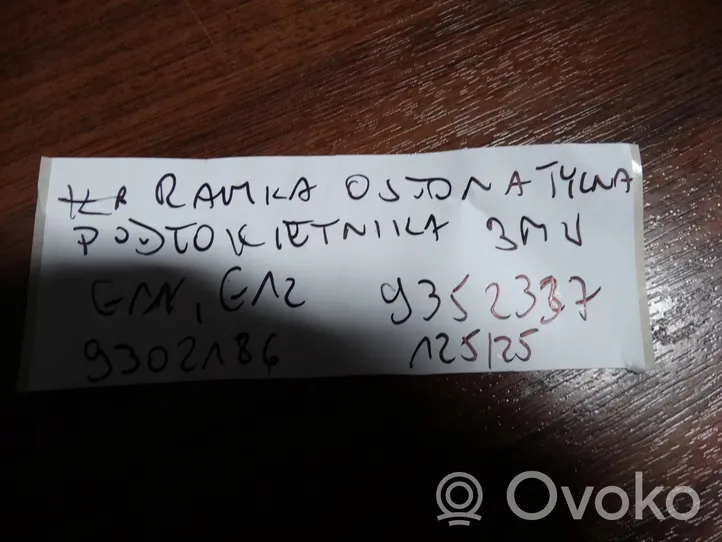 RAMKA OSŁONA TYLNA
PODŁOKIETNIKA BMW
G11, G12 9352337
9302186 125/25
Ovoko